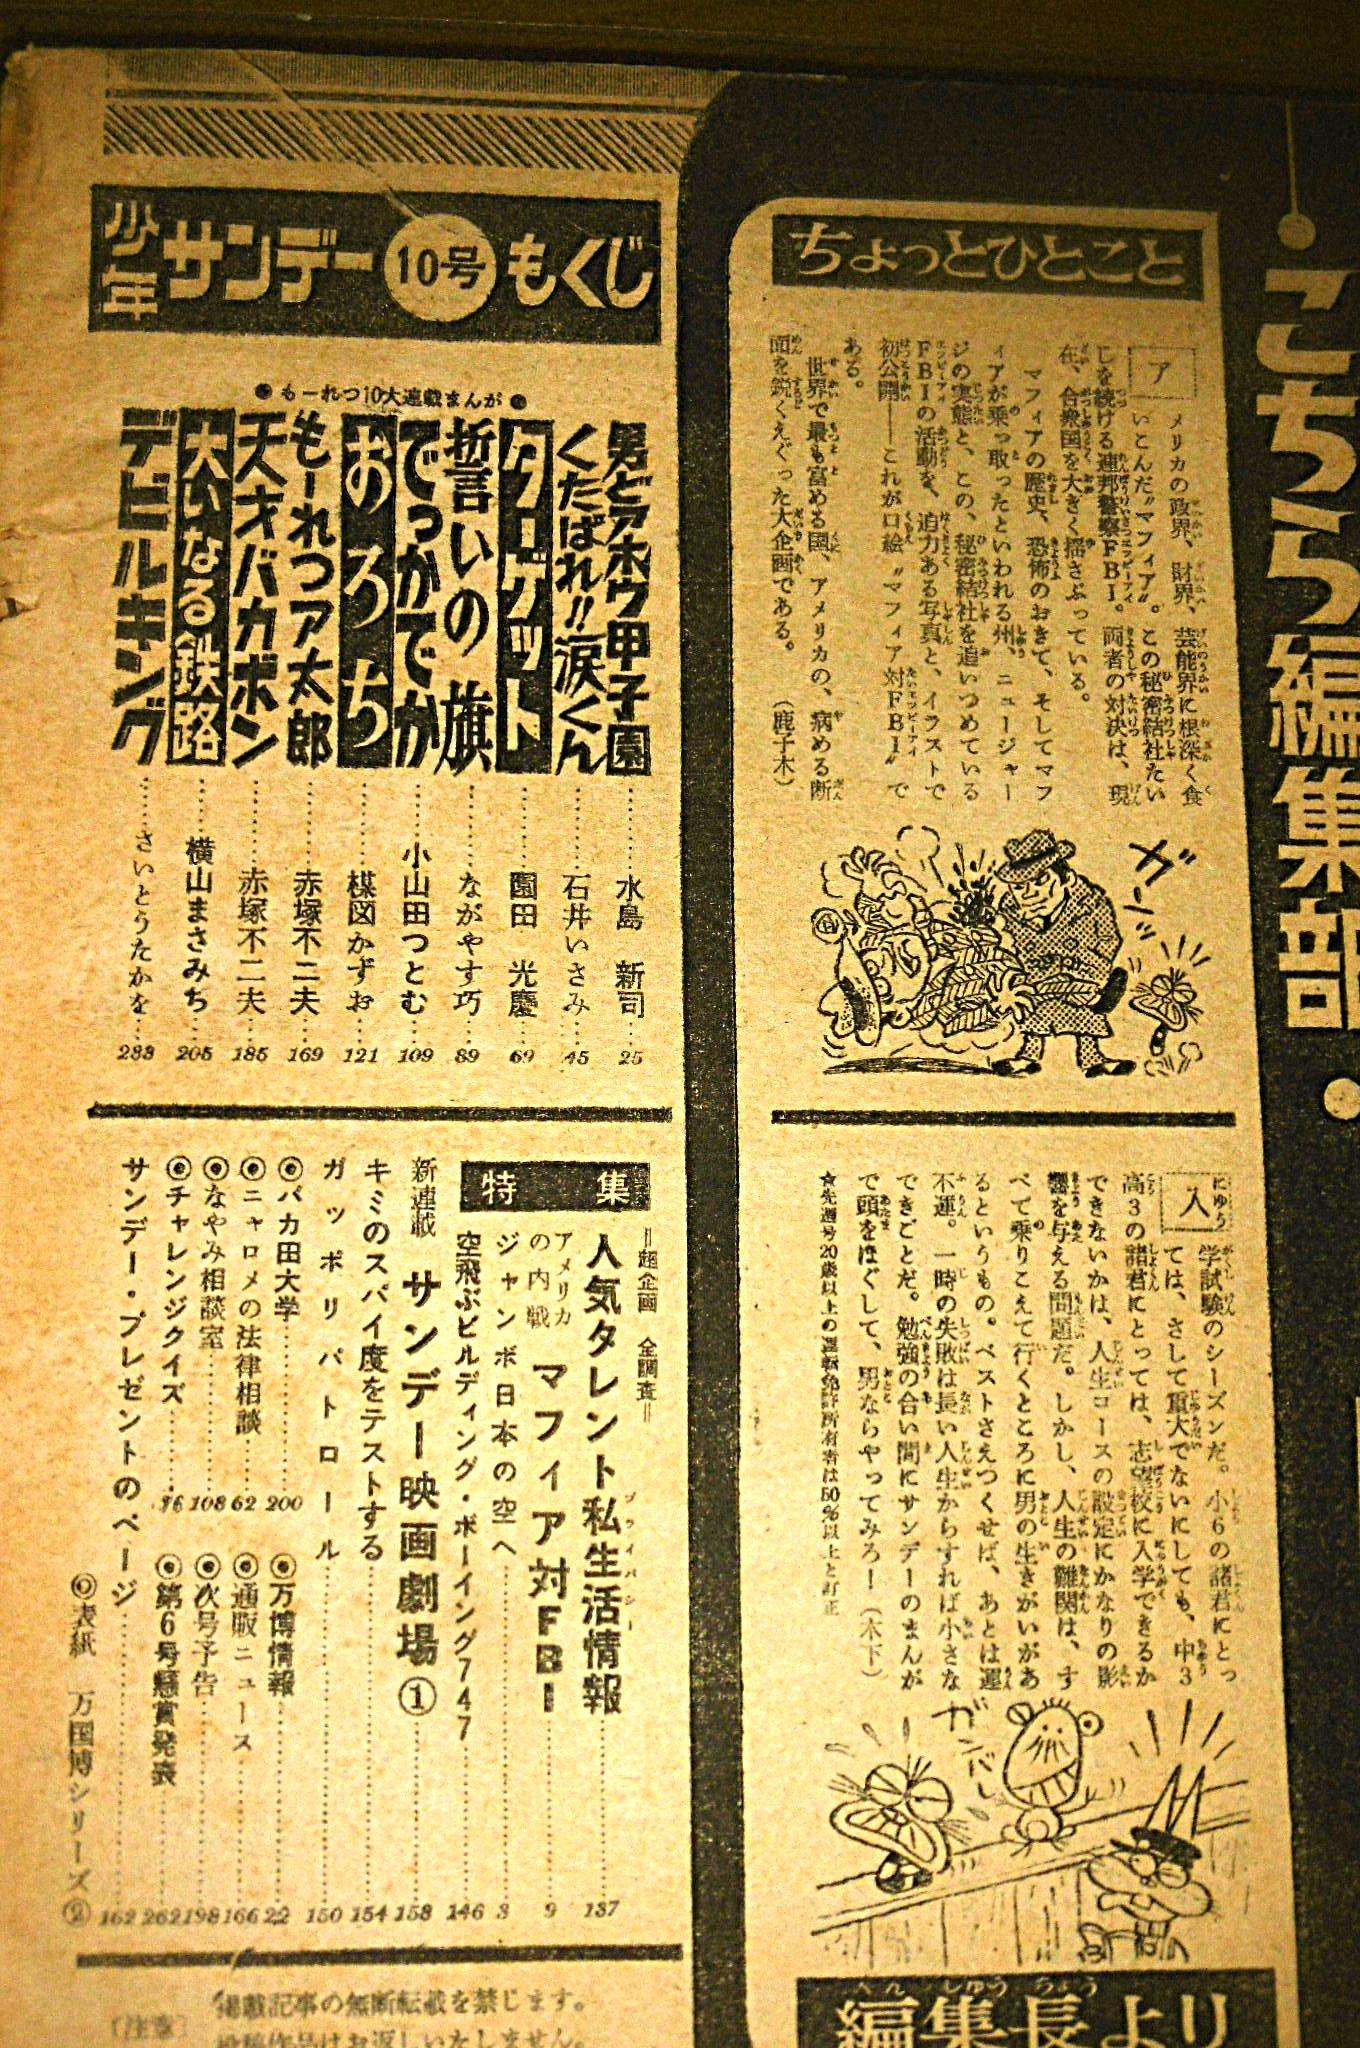 こちら編集部
ちょっとひとこと
アメリカの政界、財界、芸能界に根深く食
いこんだ〝マフィア〟。この秘密結社たい
じを続ける連邦警察FBI。両者の対決は、現
在、合衆国を大きく揺さぶっている。
マフィアの歴史、恐怖のおきて、そしてマフ
ィアが乗っ取ったといわれる州、ニュージャー
ジの実態と、この、秘密結社を追いつめている
FBIの活動を、迫力ある写真と、イラストで
初公開――これが口絵〝マフィア対FBI〟で
ある。
世界で最も富める国、アメリカの、病める断
面を鋭くえぐった大企画である。 (鹿子木)
ガーン
入学試験のシーズンだ。小6の諸君にとっ
ては、さして重大でないにしても、中3
高3の諸君にとっては、志望校に入学できるか
できないかは、人生コースの設定にかなりの影
響を与える問題だ。しかし、人生の難関は、す
べて乗りこえて行くところに男の生きがいがあ
るというもの。ベストさえつくせば、あとは運
不運。一時の失敗は長い人生からすれば小さな
できごとだ。勉強の合い間にサンデーのまんが
で頭をほぐして、男ならやってみろー(木下)
★先週号20歳以上の運転免許所有者は50%以上と訂正
ガンバレ
編集長より
少年サンデー10号もくじ
●もーれつ10大連載まんが●
男どアホウ甲子園……水島新司…25
くたばれ!!涙くん……石井いさみ…45
ターゲット……園田光慶…69
誓いの旗……ながやす巧…89
でっかでか……小山田つとむ…109
おろち……楳図かずお…121
もーれつア太郎……赤塚不二夫…169
天才バカボン……赤塚不二夫…185
大いなる鉄路……横山まさみち…205
デビルキング……さいとうたかを…233
特集
=超企画 全調査=
人気タレント私生活情報……137
アメリカの内戦 マフィア対FBI……9
ジャンボ日本の空へ……3
空飛ぶビルディング・ボーイング747……146
新連載 サンデー映画劇場①……158
キミのスパイ度をテストする……154
ガッポリパトロール……150
◉バカ田大学……200
◉万博情報……22
◉ニャロメの法律相談……62
◉通販ニュース……166
◉なやみ相談室……108
◉次号予告……198
◉チャレンジクイズ……76
◉第6号懸賞発表……262
サンデー・プレゼントのページ……162
◎表紙 万国博シリーズ②
〔注意〕
掲載記事の無断転載を禁じます。
投稿作品はお返しいたしません。